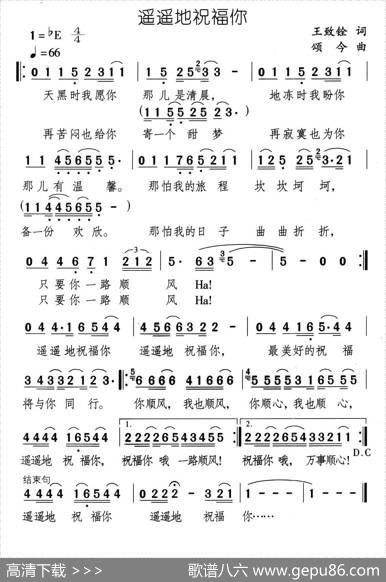 遥遥地祝福你
1=♭E 4/4
♩=66
王致铨 词
颂今 曲
0 1 1 5 2 3 1 1 | 1 5 2 5 2 3 3 - | 0 1 1 5 2 3 1 1
天黑时我愿你 那儿是清晨, 地冻时我盼你
(1 1 5 5 2 5 2 3 ·)
再苦闷也给你 寄一个甜梦 再寂寞也为你
1 1 4 5 6 5 5 5 · | 0 1 1 7 6 5 2 1 1 | 1 2 5 5 2 3 · 2 1
那儿有温馨。 那怕我的旅程 坎坎坷坷,
(1 1 4 4 5 6 5 5 -)
备一份欢欣。 那怕我的日子 曲曲折折,
0 4 4 6 7 1 2 1 2 | 5 · 6 3 5 - | 5 - 0 0
只要你一路顺风 Ha!
只要你一路顺风 Ha!
0 4 4 · 1 6 5 4 4 | 4 5 6 6 3 2 2 - | 0 4 4 1 6 5 · 4 4
遥遥地祝福你 遥遥地祝福你, 最美好的祝福
3 4 3 3 2 1 2 3 - 5 6 6 6 6 4 1 6 6 6 | 4 5 5 5 5 3 1 5 5 5
将与你同行。 你顺风,我也顺风, 你顺心,我也顺心,
4 4 4 4 1 6 5 4 4 | 1. 2 2 2 2 6 5 4 3 4 5 5 | 2. 2 2 2 2 6 5 4 3 3 2 1 1
D.C
遥遥地祝福你, 祝福你哦一路顺风! 祝福你哦,万事顺心!
结束句
4 4 4 4 1 6 5 4 4 | 0 2 2 2 3 2 | 1 - - - | 1 - - -
遥遥地祝福你 遥遥地祝福你……
高清下载 >>>
歌谱八六 www.gepu86.com